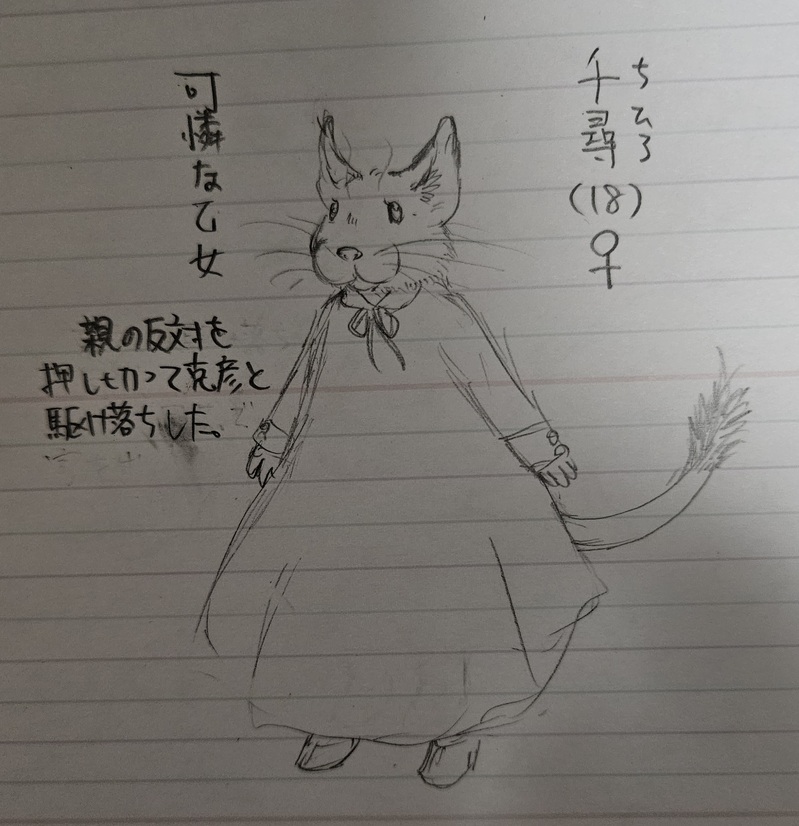 千尋
ちひろ
(18)
♀
可憐な乙女
親の反対を
押しきって克彦と
駆け落ちした。